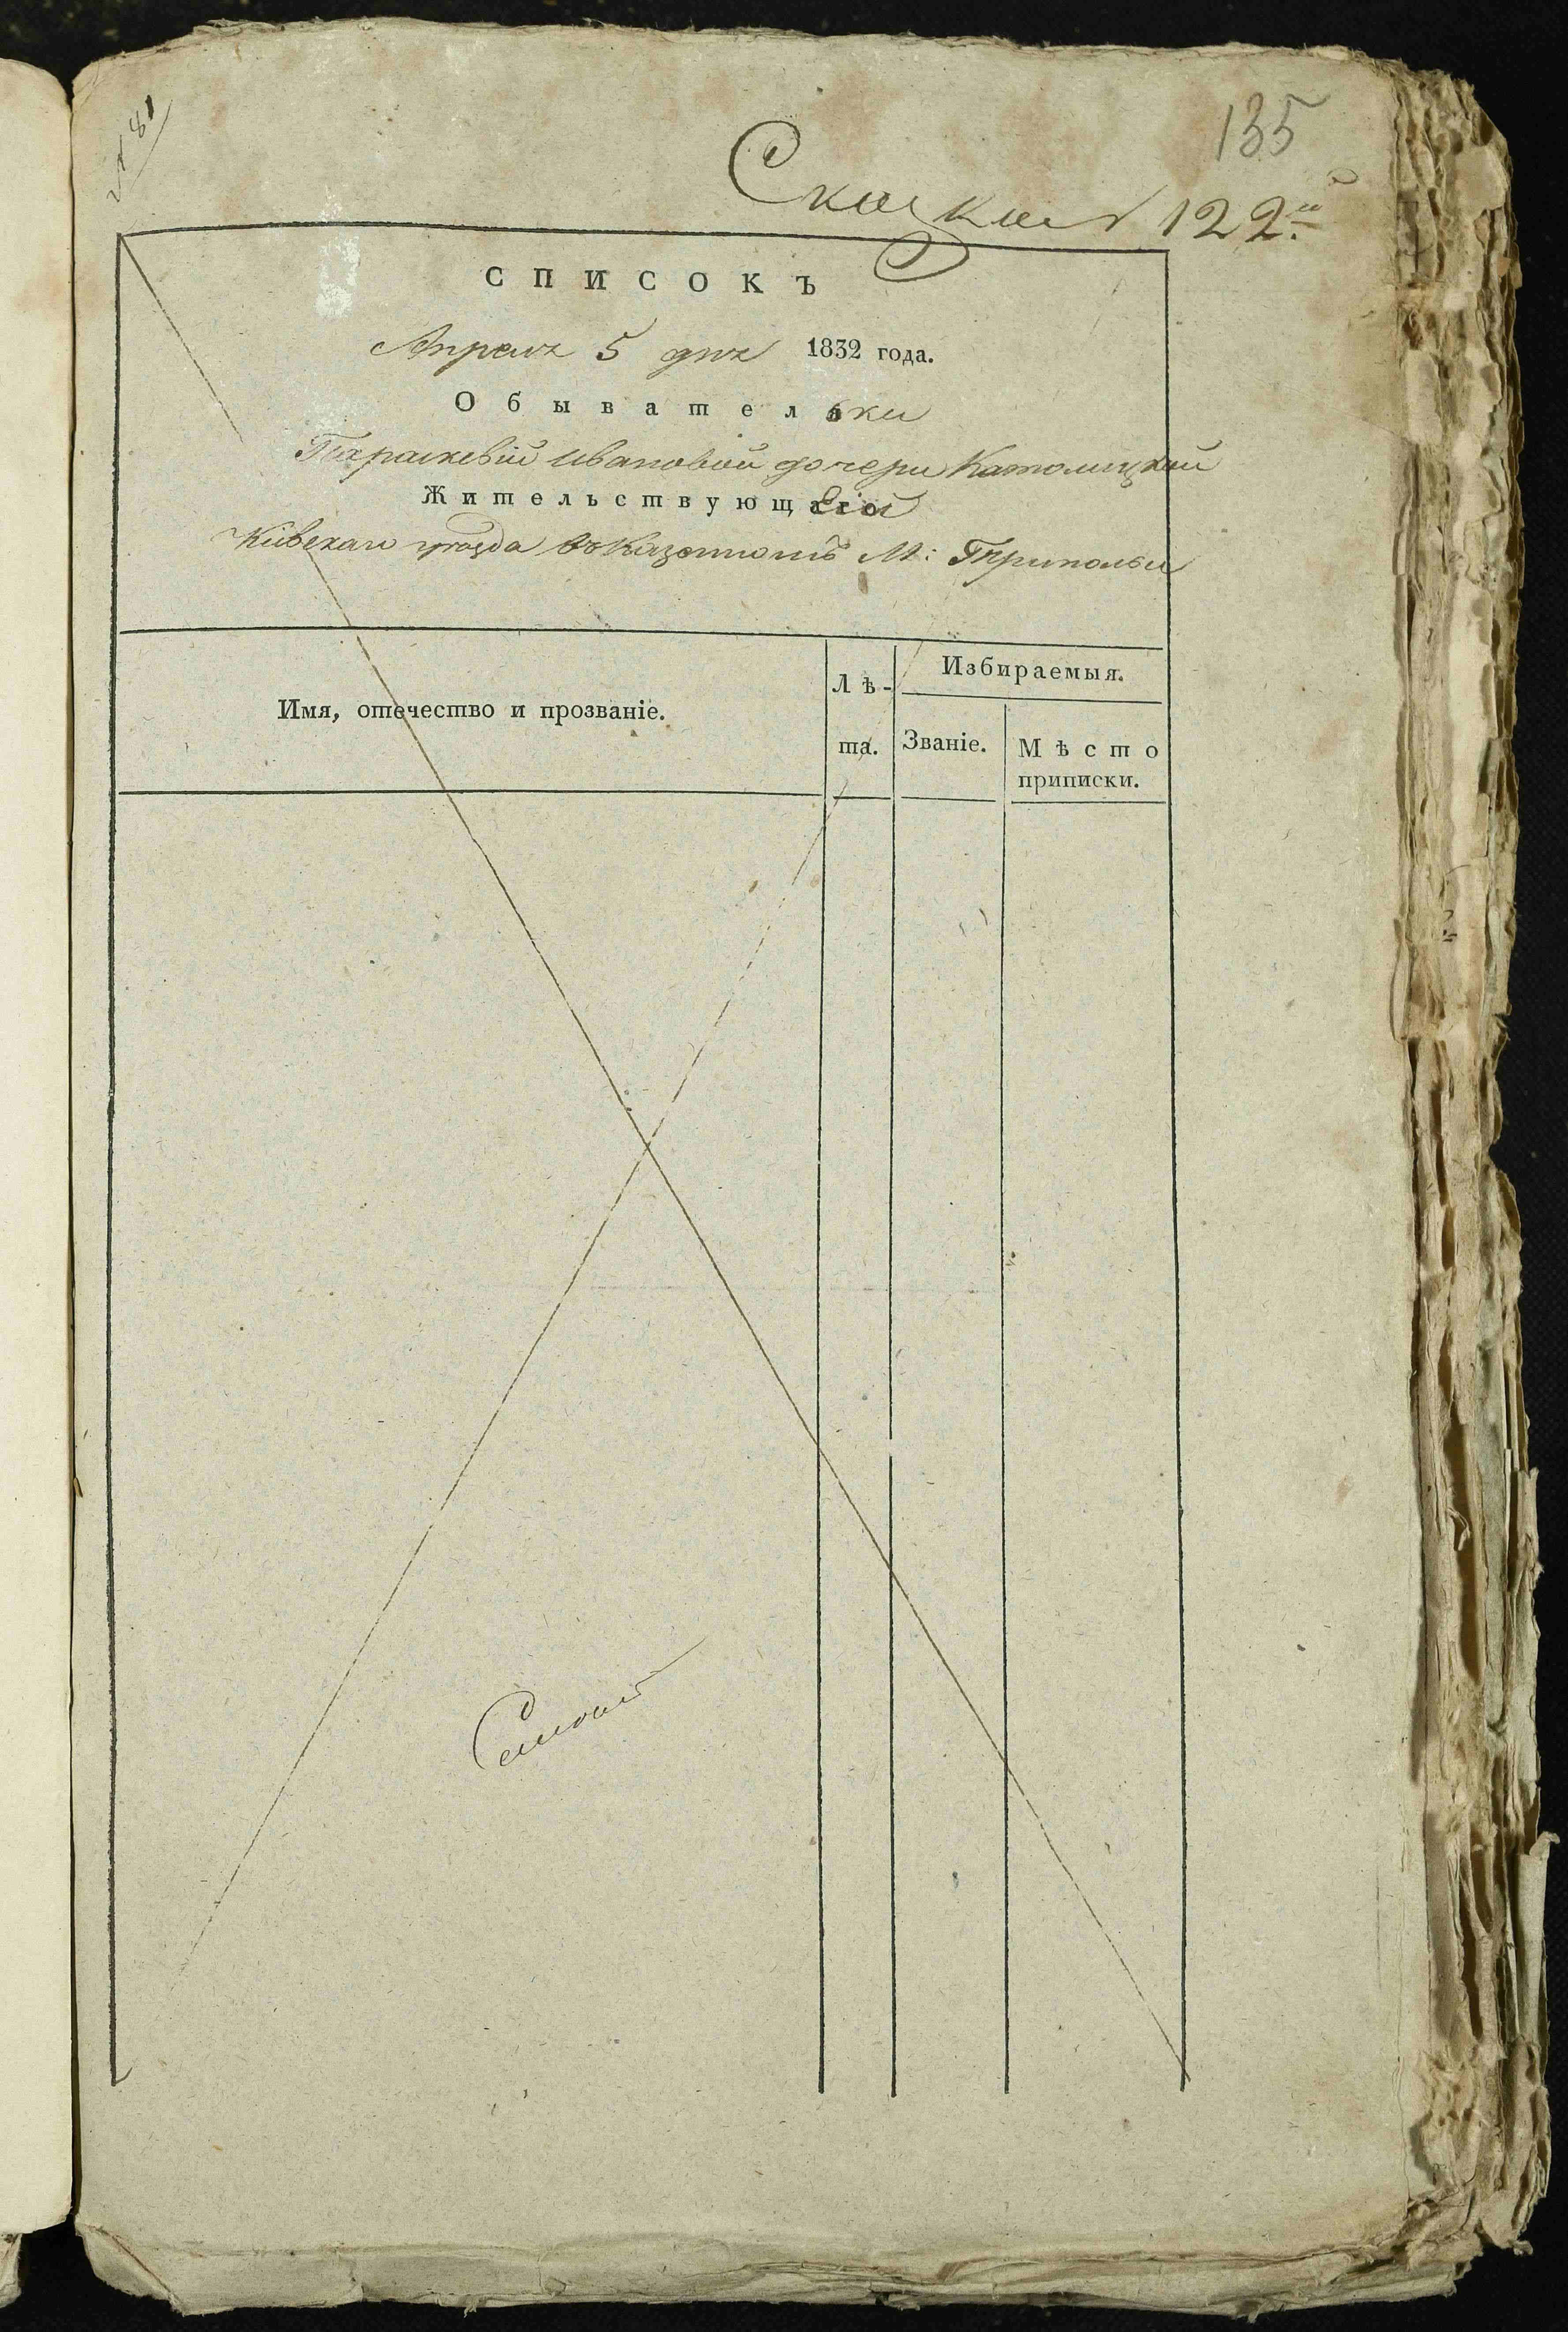 № 81
135
Сказка 122й
СПИСОКЪ
Апреля 5 дня 1832 года.
Обывательки
Параскевiи Ивановой дочери Католицкой
Жительствующей
Кiевскаго уезда въ Казенномъ М: Триполье
Имя, отечество и прозванiе.
Лѣ-
та.
Избираемыя.
Званiе.
Мѣсто
приписки.